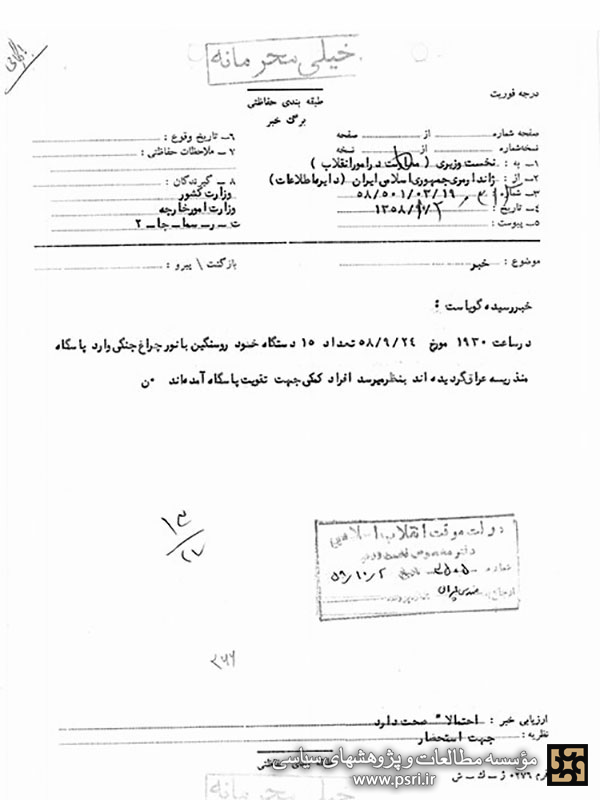 خیلی محرمانه
طبقه بندی حفاظتی
برگ خبر
درجه فوریت
صفحه شماره از صفحه
نسخه شماره از نسخه
۱ـ به : نخست وزیری ( در امور انقلاب )
۲ـ از : ژاندارمری جمهوری اسلامی ایران (دایره اطلاعات)
۳ـ شماره ۵۸/۵۰۱/۰۳/۱۹
۴ـ تاریخ : ۱۳۵۸/۱۰/۲
۵ـ پیوست :
۶ـ تاریخ وقوع :
۷ـ ملاحظات حفاظتی :
۸ـ گیرندگان :
وزارت کشور
وزارت امور خارجه
ت ـ ر ـ سماـ جاـ ۲
موضوع : خبر
بازگشت \ پیرو :
خبر رسیده گویاست :
در ساعت ۱۹۳۰ مورخ ۵۸/۹/۲۴ تعداد ۱۵ دستگاه خودرو سنگین با نور چراغ جنگی وارد پاسگاه
منذریسه عراق گردیده اند بنظر میرسد افراد کمکی جهت تقویت پاسگاه آمده‌اند ۰ن
۱۳
/۲۷
دولت موقت انقلاب اسلامی
دفتر مخصوص نخست وزیر
شماره تاریخ ۵۹/۱۰/۲
۲۶۶
ارزیابی خبر : احتمالا" صحت دارد
نظریه : جهت استحضار
طبقه بندی حفاظتی
فرم ۰۲۷۶ ژ ـ ک ـ ش
خیلی محرمانه
مؤسسه مطالعات و پژوهشهای سیاسی
www.psri.ir